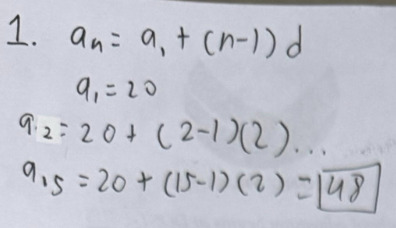 1. aₙ = a₁ + (n-1)d
a₁ = 20
a₂ = 20 + (2-1)(2)...
a₁₅ = 20 + (15-1)(2) = 48